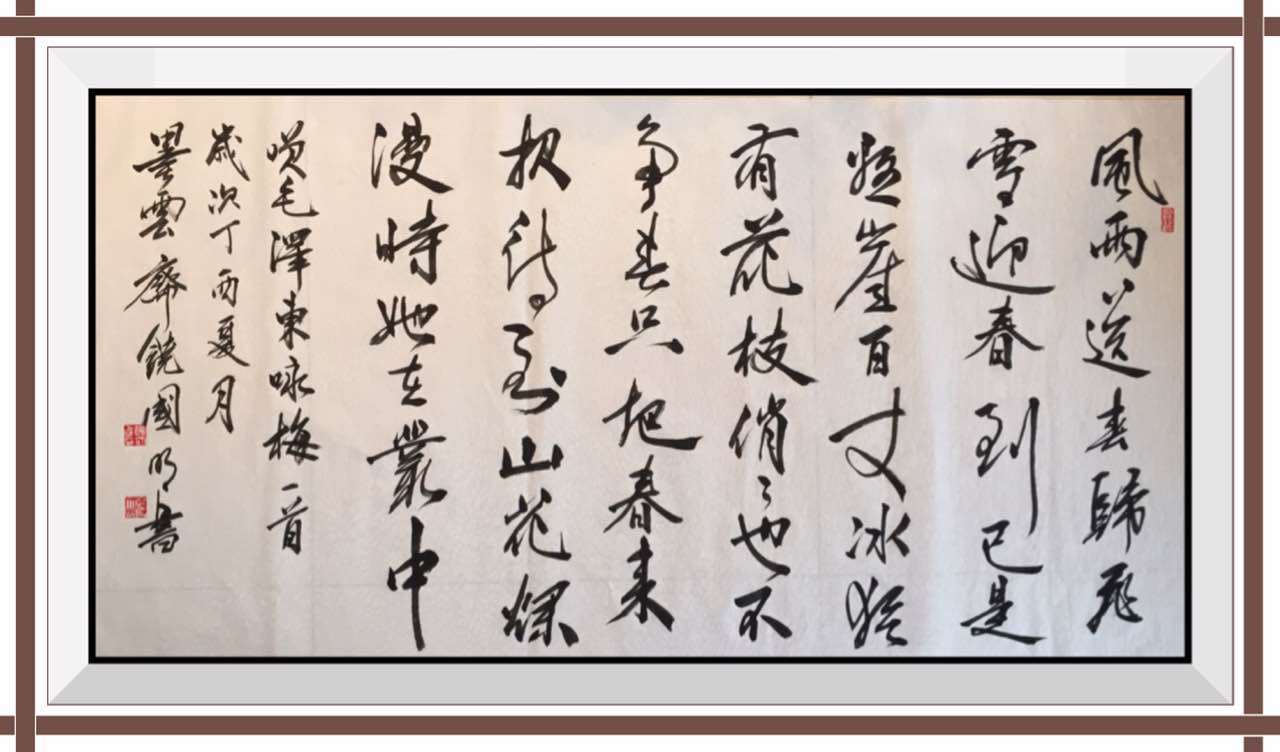 風雨送春歸飛
雪迎春到已是
懸崖百丈冰猶
有花枝俏々也不
争春只把春来
报待到山花爛
漫時她在叢中
咲毛澤東咏梅一首
歲次丁酉夏月
墨雲齋饒國明書